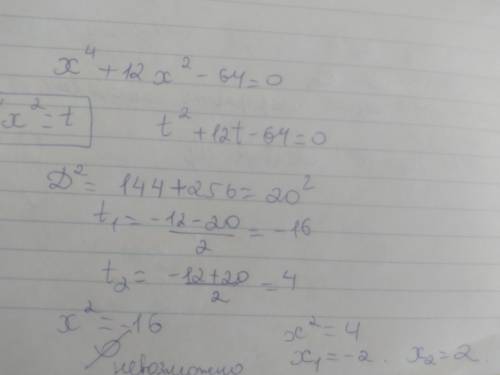 x⁴ + 12x² - 64 = 0
x² = t t² + 12t - 64 = 0
D² = 144 + 256 = 20²
t₁ = -12-20/2 = -16
t₂ = -12+20/2 = 4
x² = -16 x² = 4
∅ невозможно x₁ = -2. x₂ = 2.